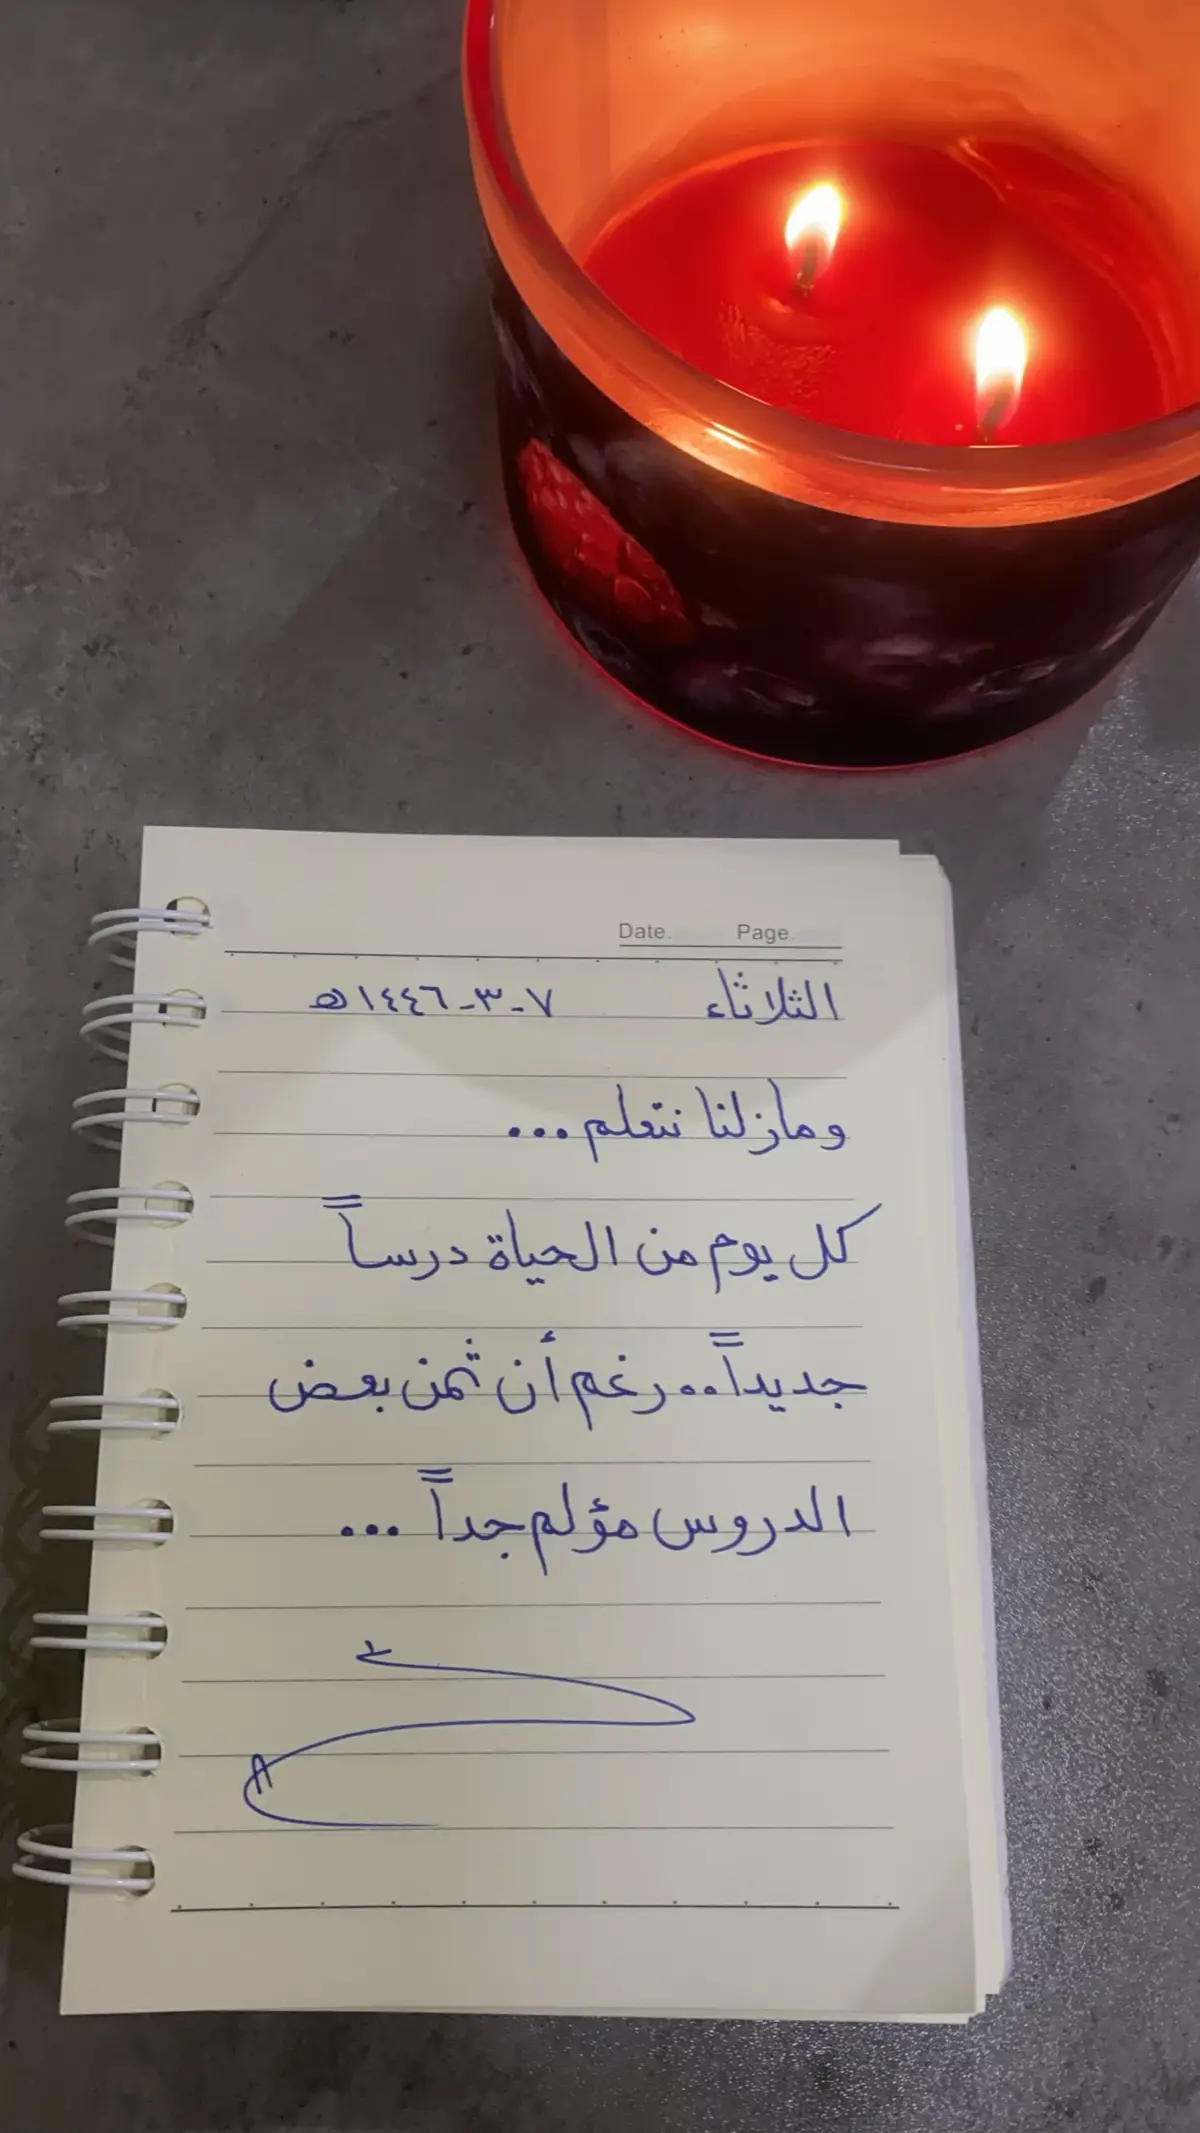 Date. Page.
الثلاثاء ٧-٣-١٤٤٦هـ
ومازلنا نتعلم...
كل يوم من الحياة درساً
جديداً.. رغم أن ثمن بعض
الدروس مؤلم جداً ...